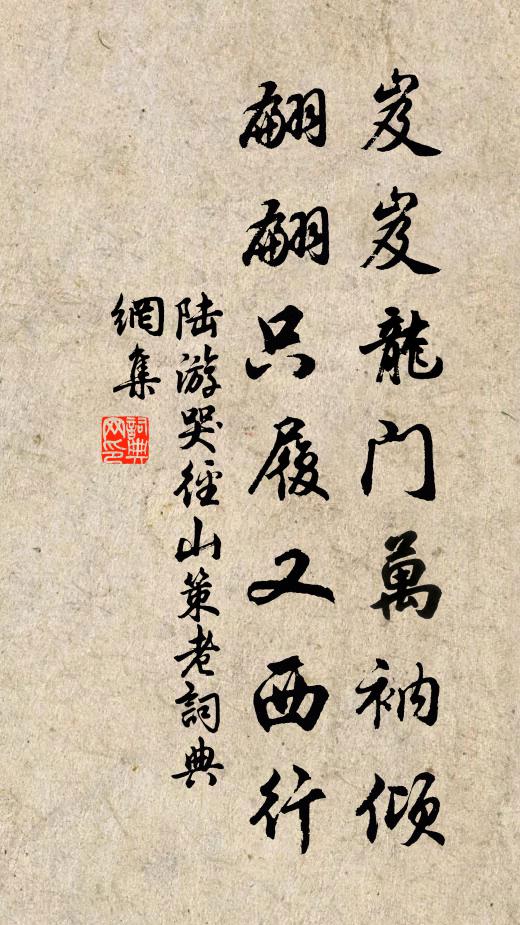 岌岌龍門萬衲傾
翩翩只履又西行
陆游哭徑山策老詞典
網集
詞典網印